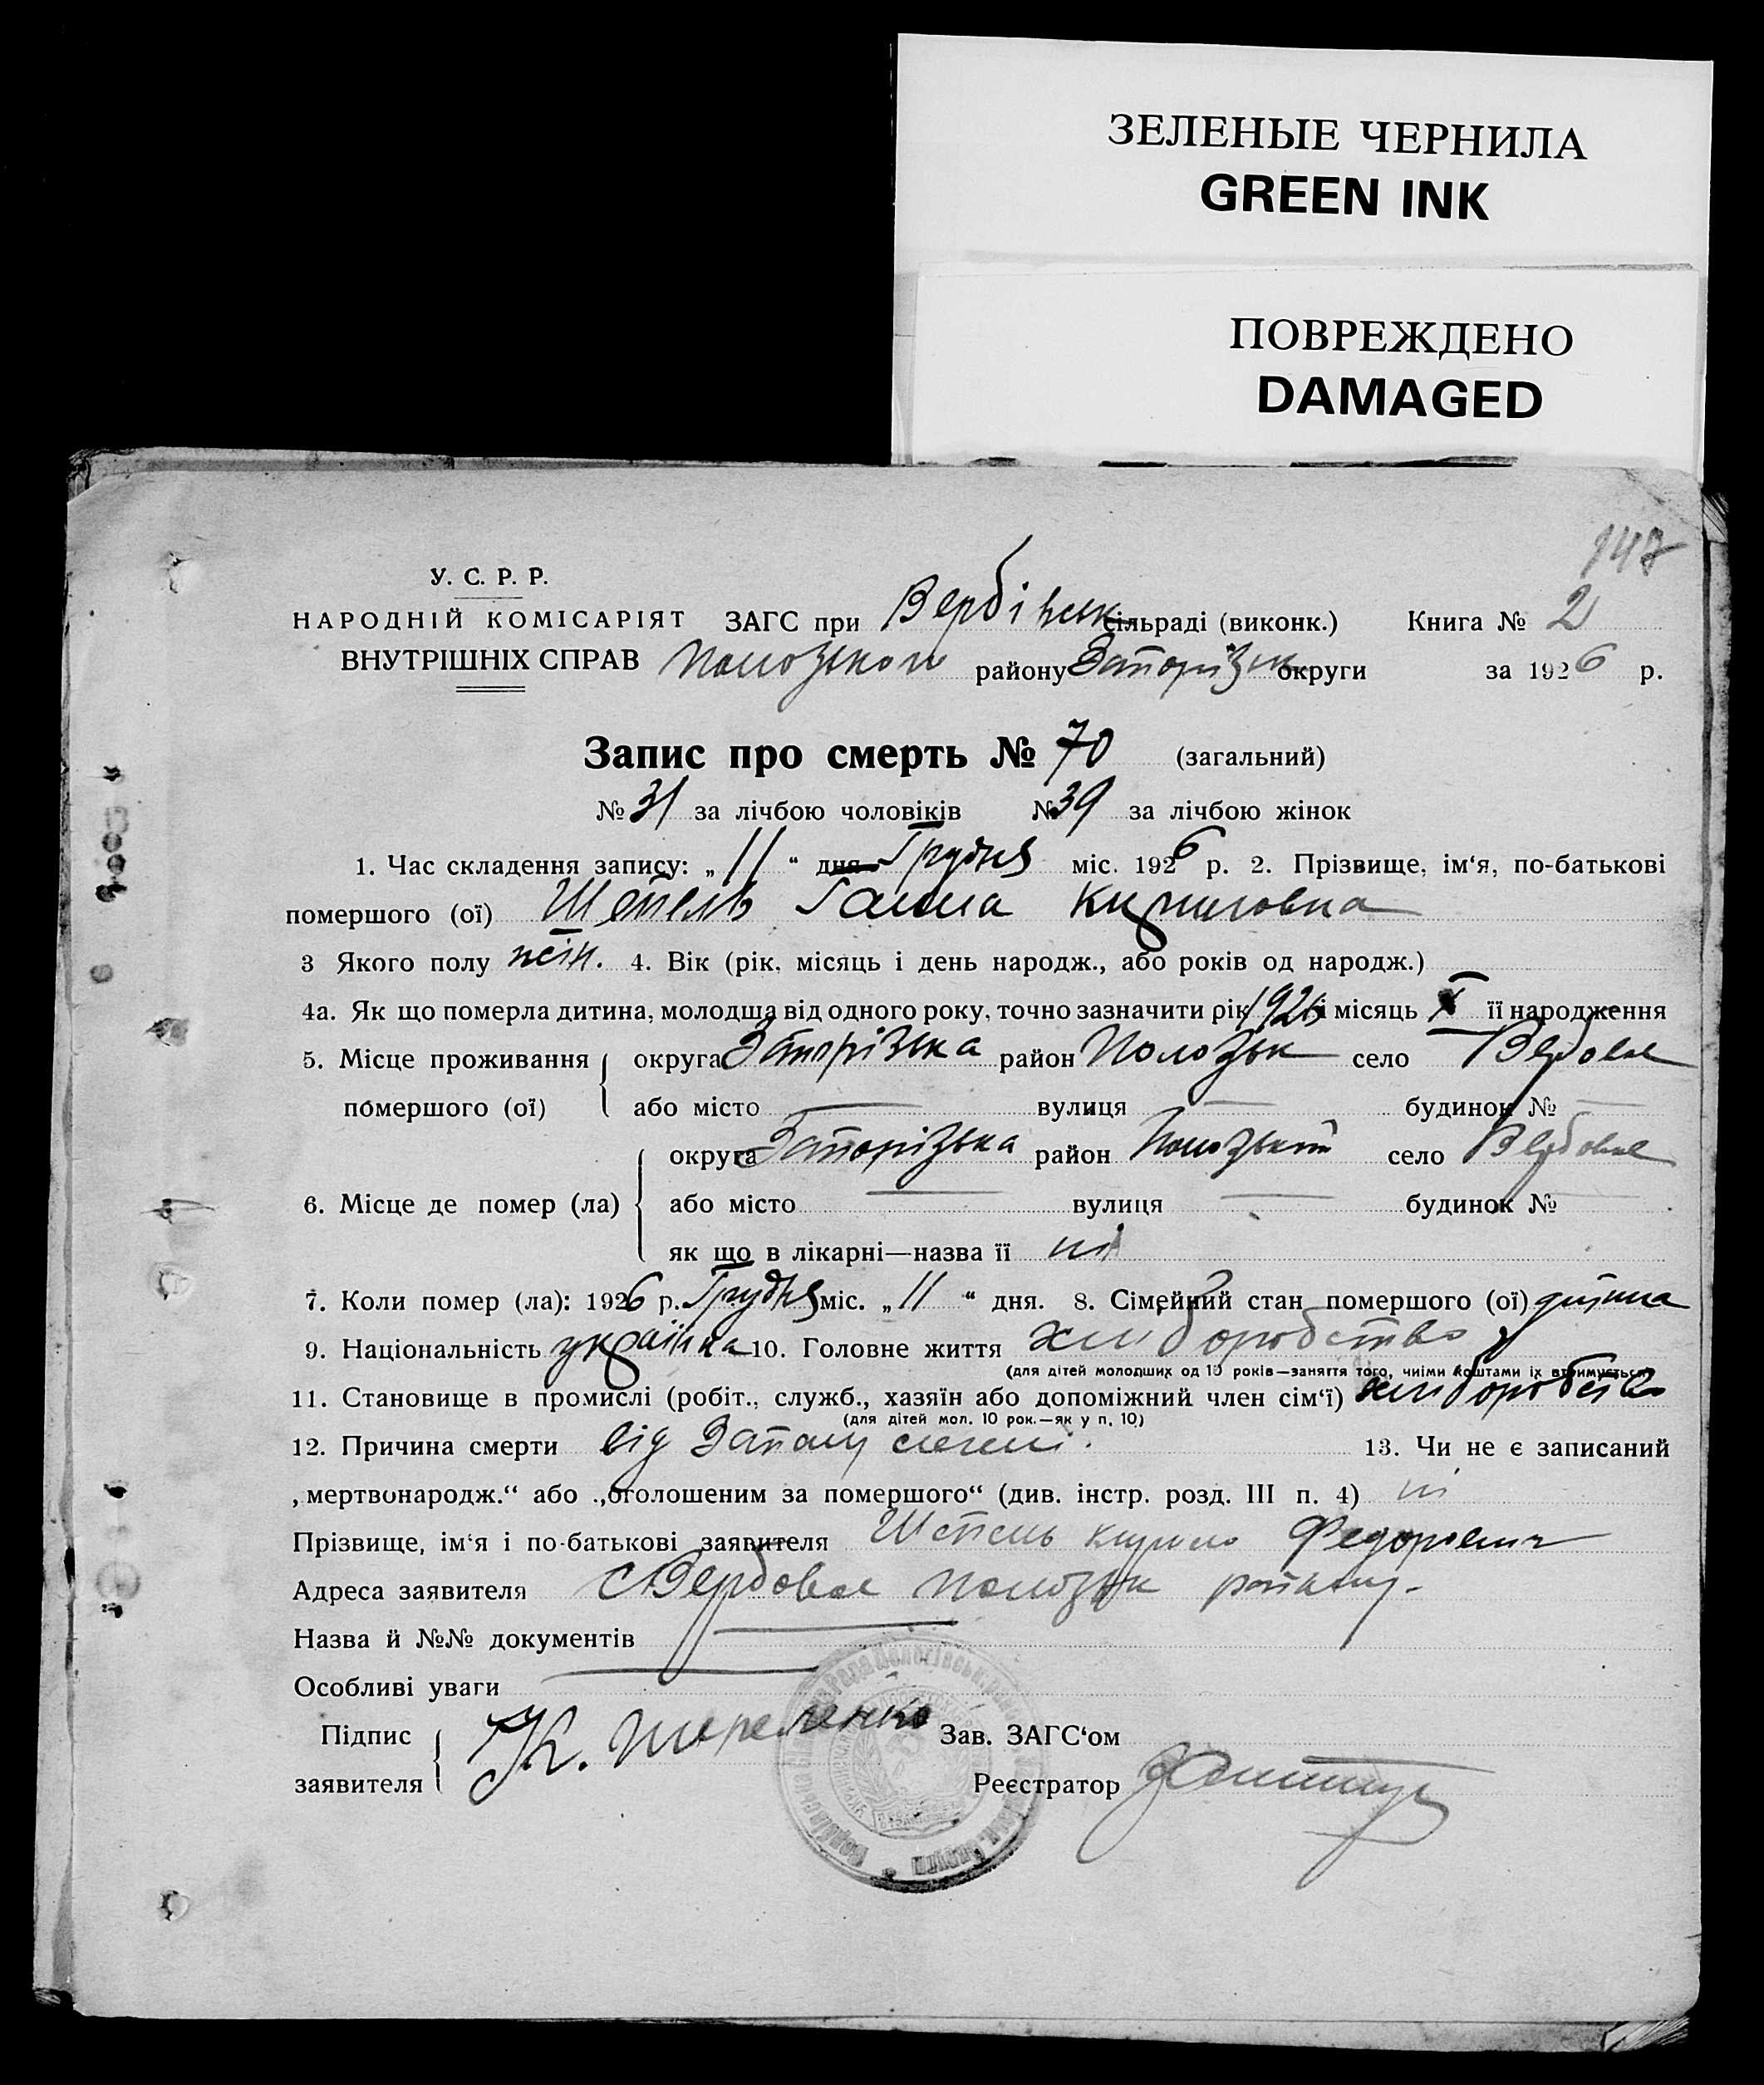 ЗЕЛЕНЫЕ ЧЕРНИЛА
GREEN INK
ПОВРЕЖДЕНО
DAMAGED
147
У. С. Р. Р.
НАРОДНІЙ КОМІСАРІЯТ ЗАГС при Вербівськ сільраді (виконк.) Книга № 2
ВНУТРІШНІХ СПРАВ Пологського району Запорізьк округи за 1926 р.
Запис про смерть № 70 (загальний)
№ 31 за лічбою чоловіків № 39 за лічбою жінок
1. Час складення запису: „ 11 “ дня Грудня міс. 1926 р. 2. Прізвище, ім‘я, по-батькові
помершого (ої) Штепель Ганна Кириловна
3 Якого полу жін. 4. Вік (рік, місяць і день народж., або років од народж.)
4а. Як що померла дитина, молодща від одного року, точно зазначити рік 1926 і місяць X її народження
5. Місце проживання округа Запорізька район Полозьк село Вербове
помершого (ої) або місто вулиця будинок №
округа Запорізька район Полозький село Вербове
6. Місце де помер (ла) або місто вулиця будинок №
як що в лікарні—назва її ні
7. Коли помер (ла): 1926 р. Грудня міс. „ 11 “ дня. 8. Сімейний стан помершого (ої) дитина
9. Національність українка 10. Головне життя хліборобство
(для дітей молодших од 10 років—заняття того, чиїми коштами їх втримується)
11. Становище в промислі (робіт., служб., хазяїн або допоміжний член сім‘ї) хліборобство
(для дітей мол. 10 рок.—як у п. 10)
12. Причина смерти від Запалу легені. 13. Чи не є записаний
„мертвонародж.“ або „оголошеним за помершого“ (див. інстр. розд. III п. 4) ні
Прізвище, ім‘я і по-батькові заявителя Кирило Федорович
Адреса заявителя с Вербове Полозьк району
Назва й №№ документів
Особливі уваги
Підпис К. Зав. ЗАГС‘ом
заявителя Реєстратор